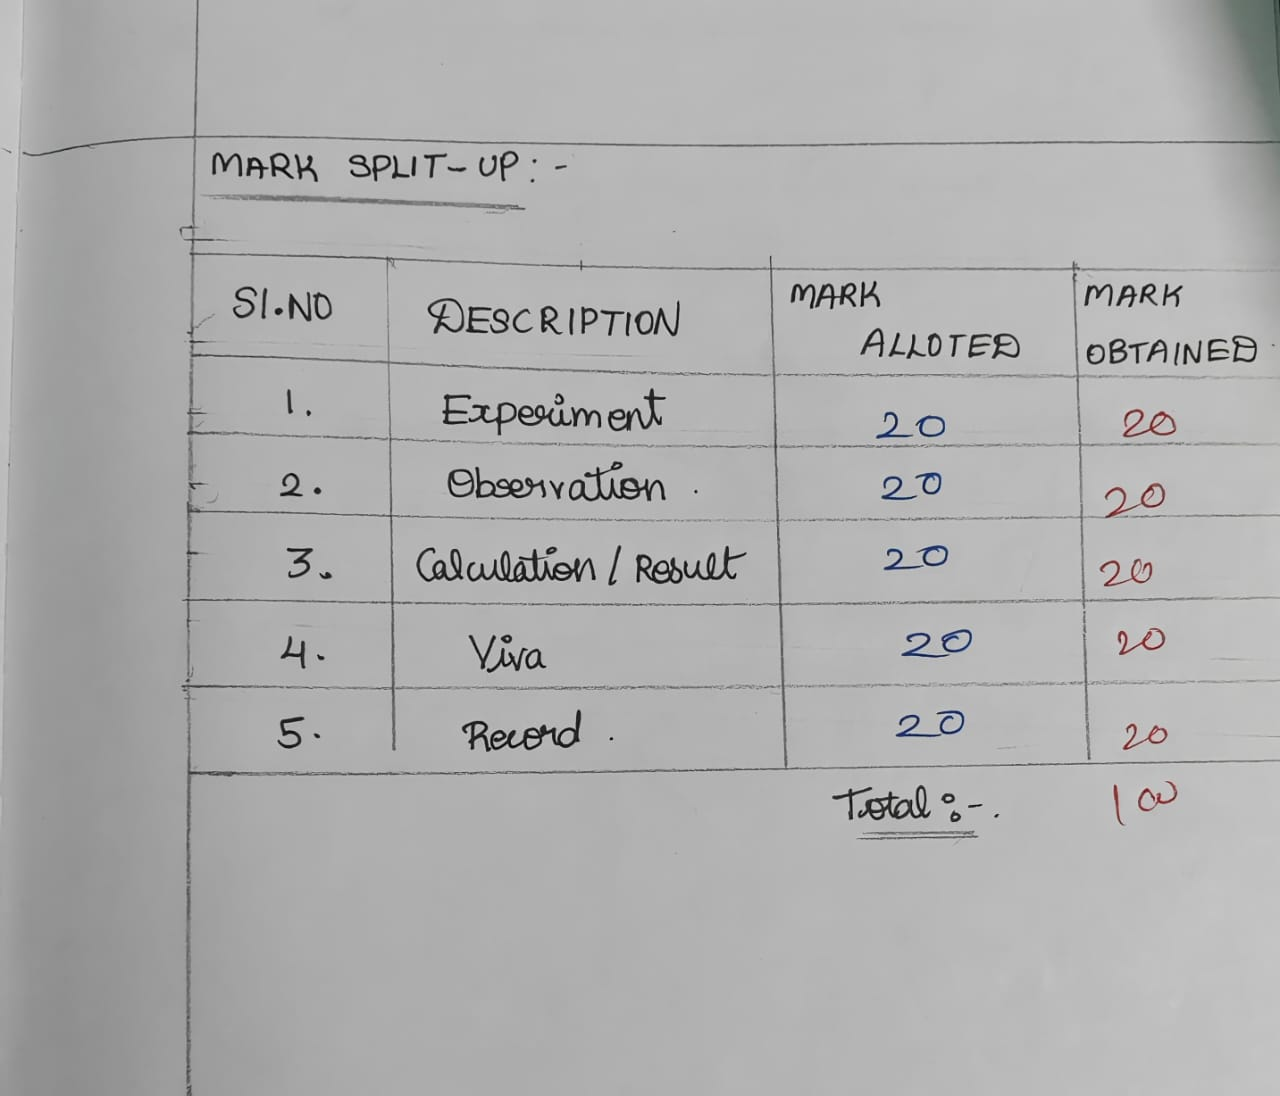 MARK SPLIT-UP:-
Sl.NO DESCRIPTION MARK ALLOTED MARK OBTAINED
1. Experiment 20 20
2. Observation. 20 20
3. Calculation / Result 20 20
4. Viva 20 20
5. Record. 20 20
Total :-. 100